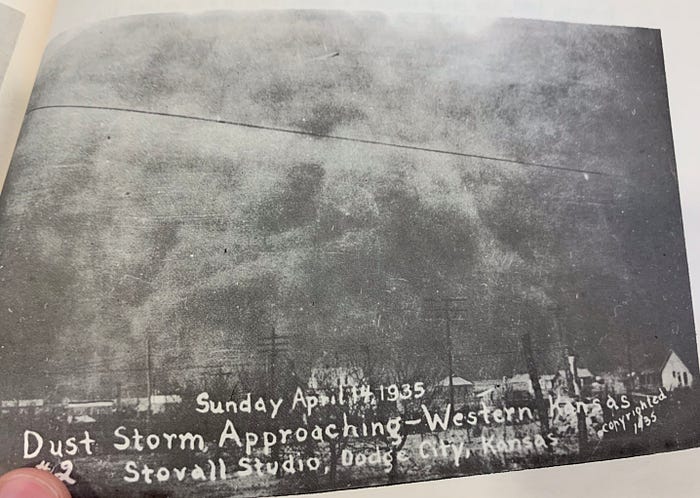 Sunday April 14, 1935
Dust Storm Approaching-Western Kansas
#2 Stovall Studio, Dodge City, Kansas
copyrighted
1935